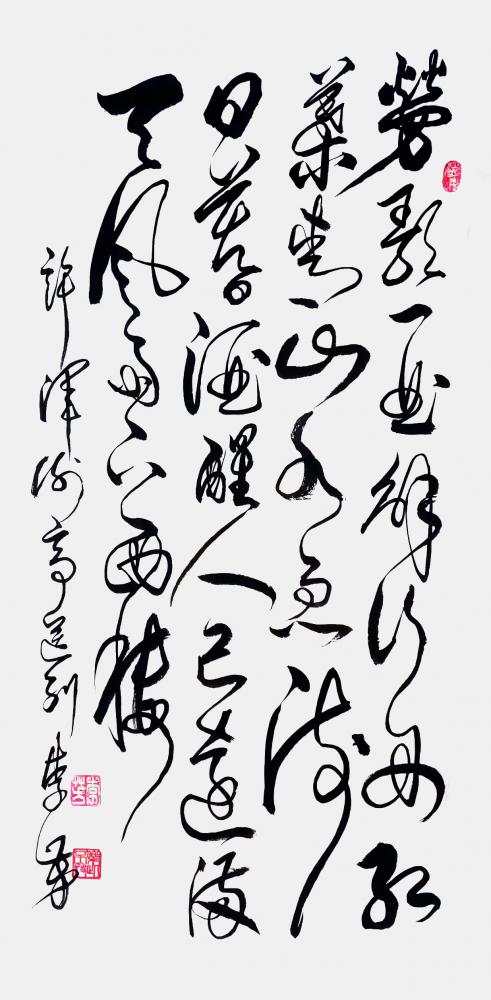 勞歌一曲解行舟紅
葉青山水急流
日暮酒醒人已遠滿
天風雨下西樓
許渾謝亭送別